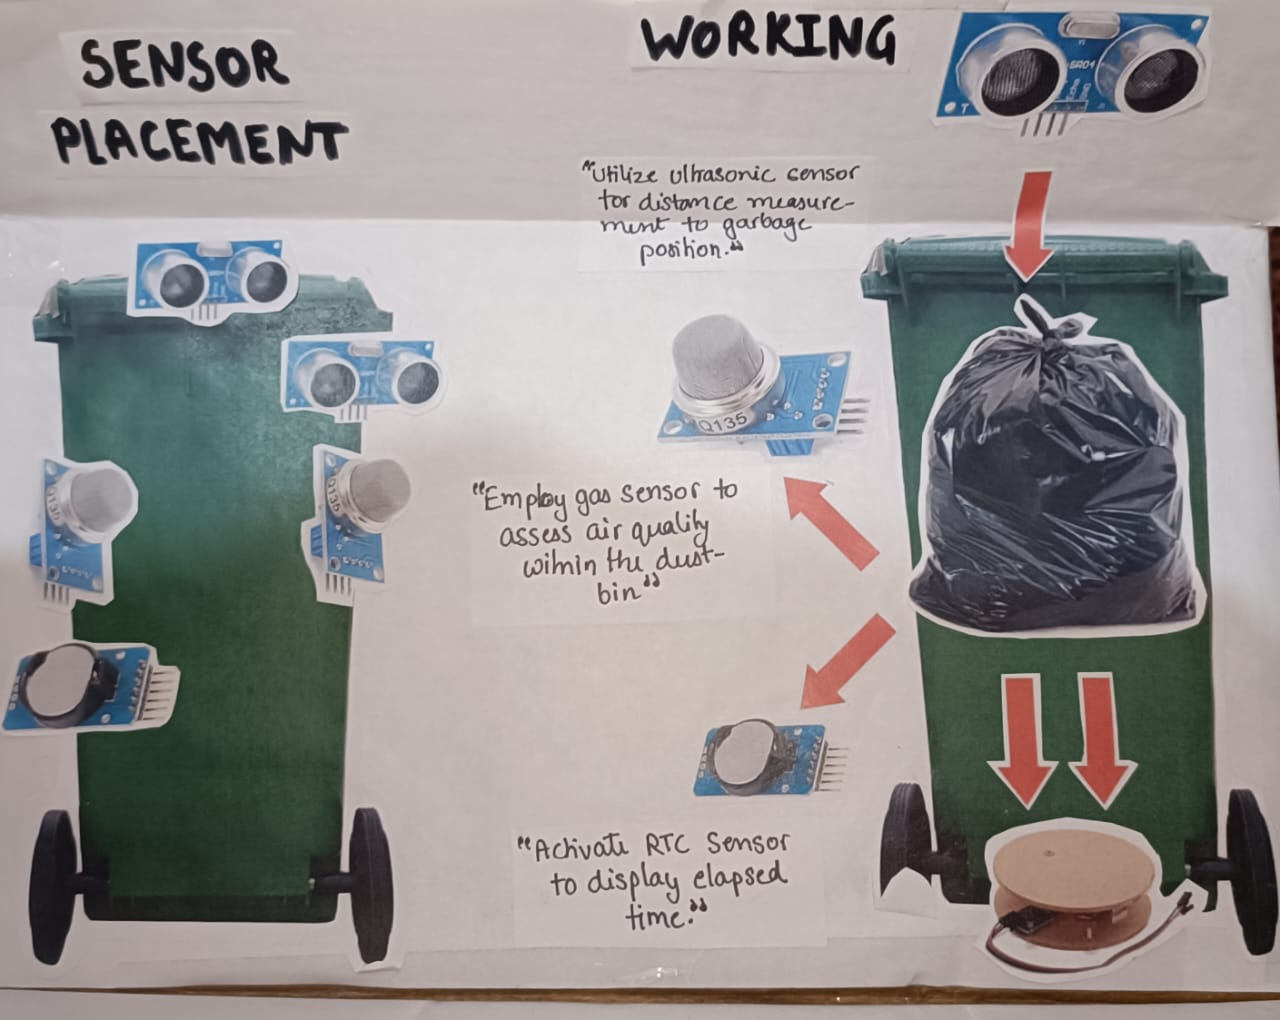 SENSOR
PLACEMENT
WORKING
SR04
T
Echo
"Utilize ultrasonic sensor
for distance measure-
ment to garbage
position."
Q135
"Employ gas sensor to
assess air quality
within the dust-
bin"
"Activate RTC Sensor
to display elapsed
time."
Q135
Q135